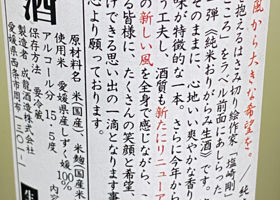 風から大きな希望を。／純
抱えるはさみ切り絵作家・塩崎剛
ごころ」をラベル前面にあしらった
弾《純米おりがらみ生酒》です。
そのままに、心地いい爽やかな香り
味が特徴的な一本。さらに今年から
う工夫し、酒質も新たにリニューア
の新しい風を全身で感じながら、
ける皆様に、たくさんの笑顔と希望、
けできる思い出の一滴になります事
心より願っております。
酒
原材料名 米(国産)、米麹(国産米
使用米 愛媛県産しずく媛100%
アルコール分 15.5度
保存方法 要冷蔵
製造者 成龍酒造株式会社
愛媛県西条市周布1301-1
生